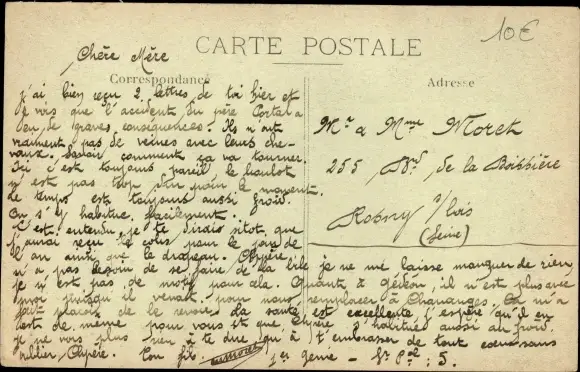 10€
CARTE POSTALE
Correspondance
Adresse
Chère Mère
j'ai bien reçu 2 lettres de toi hier et
je vois que l'accident du père Portal a
eu de graves conséquences. Ils n'ont
vraiment pas de veines avec leurs che-
vaux. Savoir comment ça va tourner.
Ici c'est toujours pareil le boulot
n'est pas trop dur pour le moment.
le temps est toujours aussi froid.
On s'y habitue facilement.
C'est entendu je te dirais sitôt que
j'aurai reçu le colis pour le jour de
l'an ainsi que le drapeau.
n'a pas besoin de se faire de la bile je ne me laisse manquer de rien,
je n'est pas de motif pour cela. Quant à Gédéon, il n'est plus avec
moi puisqu'il venait pour nous remplacer à Chavanges. On m'a
fait plaisir de le revoir. La santé est excellente j'espère qu'il en
est de même pour vous et que s'habitue aussi au froid.
je ne vois plus rien à te dire qu'à t'embrasser de tout coeur sans
oublier
Ton fils
1er Génie - 5.
Mr & Mme Moret
255, Bvd, de la Boissière
Rosny s/bois
(Seine)